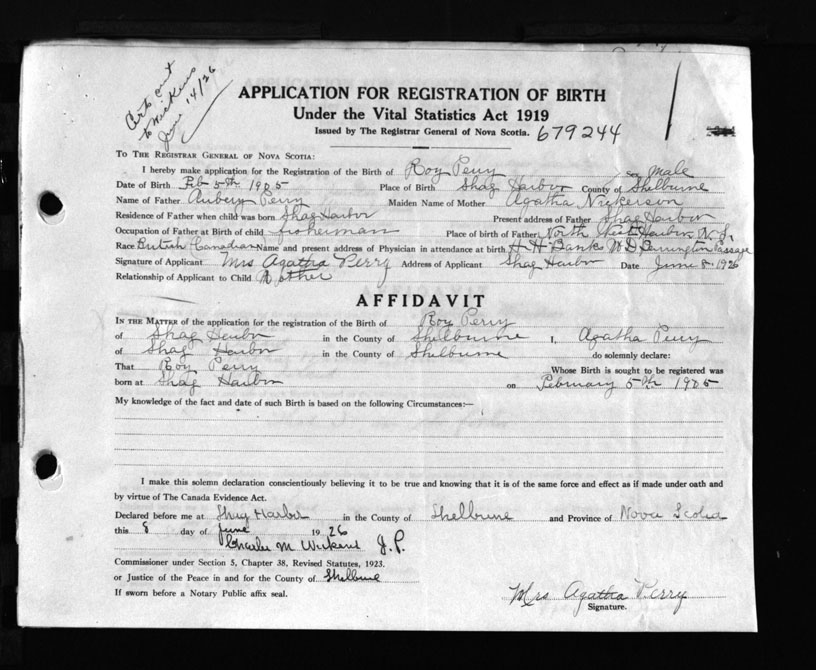 Cert out
to Wickens
June 14/26
APPLICATION FOR REGISTRATION OF BIRTH
Under the Vital Statistics Act 1919
Issued by The Registrar General of Nova Scotia. 679244
TO THE REGISTRAR GENERAL OF NOVA SCOTIA:
I hereby make application for the Registration of the Birth of Roy Perry Sex Male
Date of Birth Feb 5th 1905 Place of Birth Shag Harbor County of Shelburne
Name of Father Aubery Perry Maiden Name of Mother Agatha Nickerson
Residence of Father when child was born Shag Harbor Present address of Father Shag Harbor
Occupation of Father at Birth of child fisherman Place of birth of Father North East Harbor N.S.
Race British Canadian Name and present address of Physician in attendance at birth H H Banks M D Barrington Passage
Signature of Applicant Mrs Agatha Perry Address of Applicant Shag Harbor Date June 8. 1926
Relationship of Applicant to Child Mother
AFFIDAVIT
IN THE MATTER of the application for the registration of the Birth of Roy Perry
of Shag Harbor in the County of Shelburne I, Agatha Perry
of Shag Harbor in the County of Shelburne do solemnly declare:
That Roy Perry Whose Birth is sought to be registered was
born at Shag Harbor on February 5th 1905
My knowledge of the fact and date of such Birth is based on the following Circumstances:—
I make this solemn declaration conscientiously believing it to be true and knowing that it is of the same force and effect as if made under oath and
by virtue of The Canada Evidence Act.
Declared before me at Shag Harbor in the County of Shelburne and Province of Nova Scotia
this 8 day of June 1926
Charles M Wickens J. P.
Commissioner under Section 5, Chapter 38, Revised Statutes, 1923.
or Justice of the Peace in and for the County of Shelburne
If sworn before a Notary Public affix seal.
Mrs Agatha Perry
Signature.